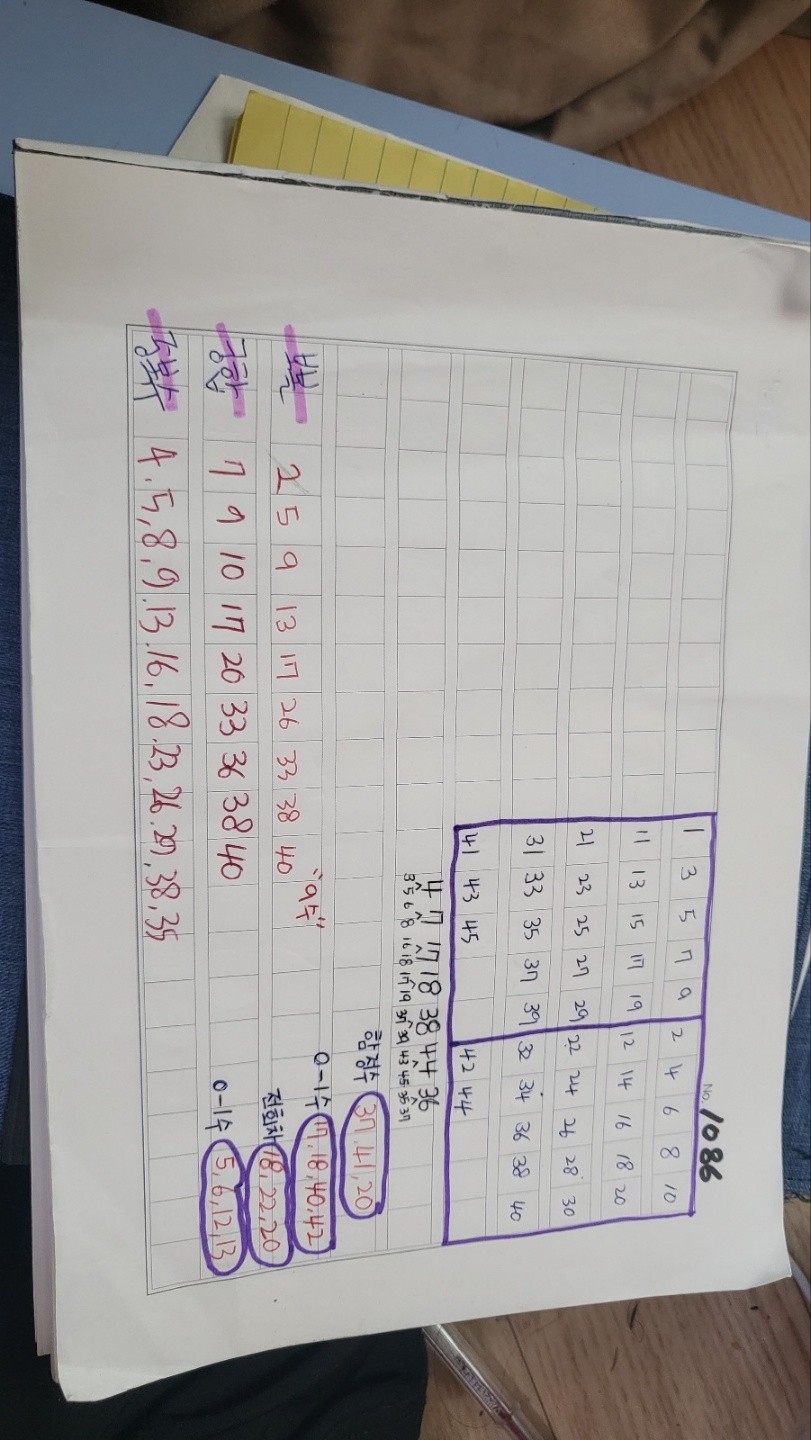 No. 1086
1 3 5 7 9 2 4 6 8 10
11 13 15 17 19 12 14 16 18 20
21 23 25 27 29 22 24 26 28 30
31 33 35 37 39 32 34 36 38 40
41 43 45 42 44
4 7 17 18 38 44 36
3 5 6 8 16 18 17 19 37 39 43 45 35 37
함정수 37.41,20
"9수" 0-1수 17,18,40,42
2 5 9 13 17 26 33 38 40 18,22,20
궁합 7 9 10 17 20 33 36 38 40 0-1수 5,6,12,13
4.5,8,9.13.16,18.23,26.27,38,35